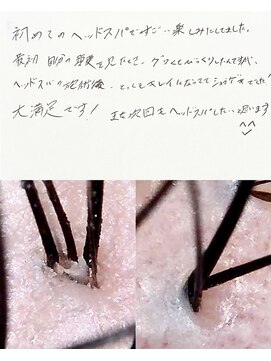 初めてのヘッドスパですごい楽しみにしてました。
最初自分の頭皮を見たとき、びっくりしたんですが、
ヘッドスパの施術後、とってもキレイになっててショウゲキでした!
大満足です! また次回もヘッドスパしたい思います
^^